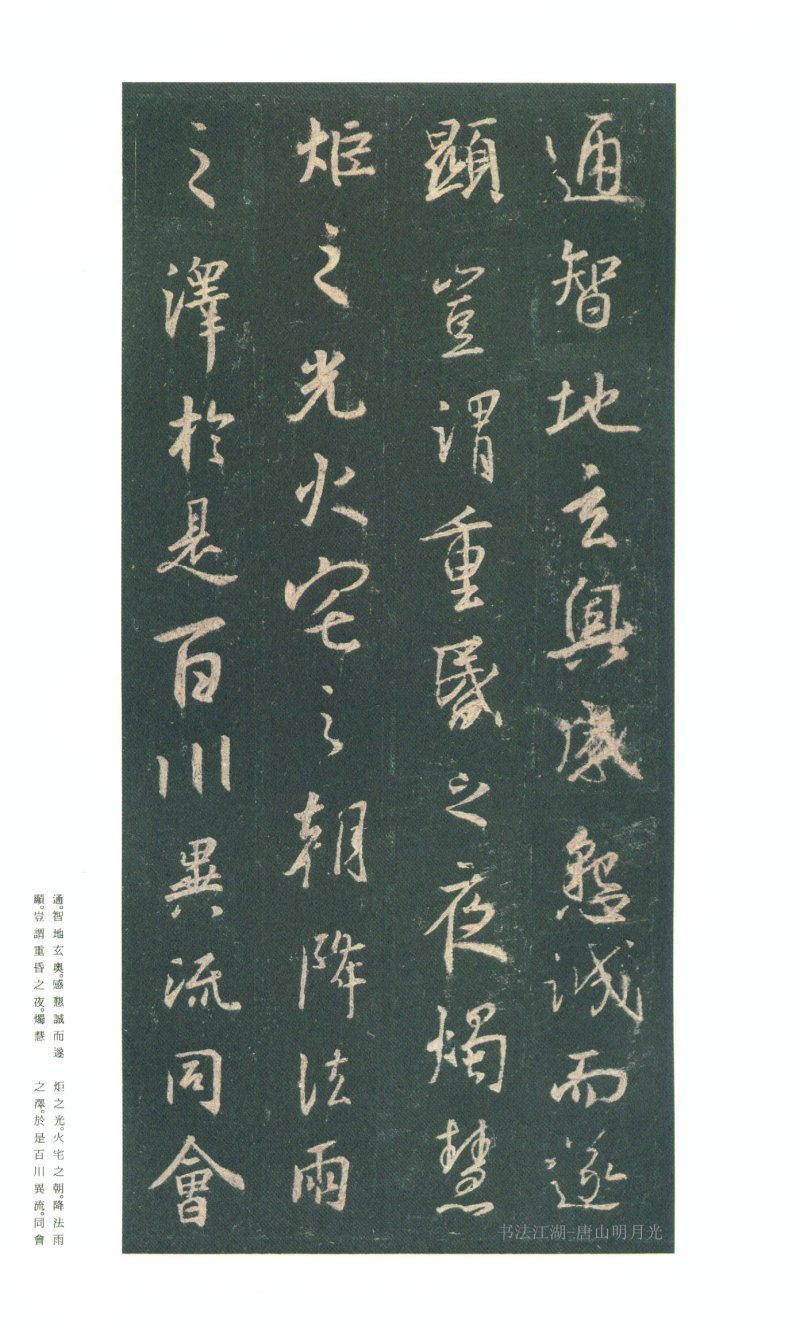 通智地玄奧感懇誠而遂
顯豈謂重昏之夜燭慧
炬之光火宅之朝降法雨
之澤於是百川異流同會
通。智地玄奧。感懇誠而遂
顯。豈謂重昏之夜。燭慧
炬之光。火宅之朝。降法雨
之澤。於是百川異流。同會
书法江湖-唐山明月光